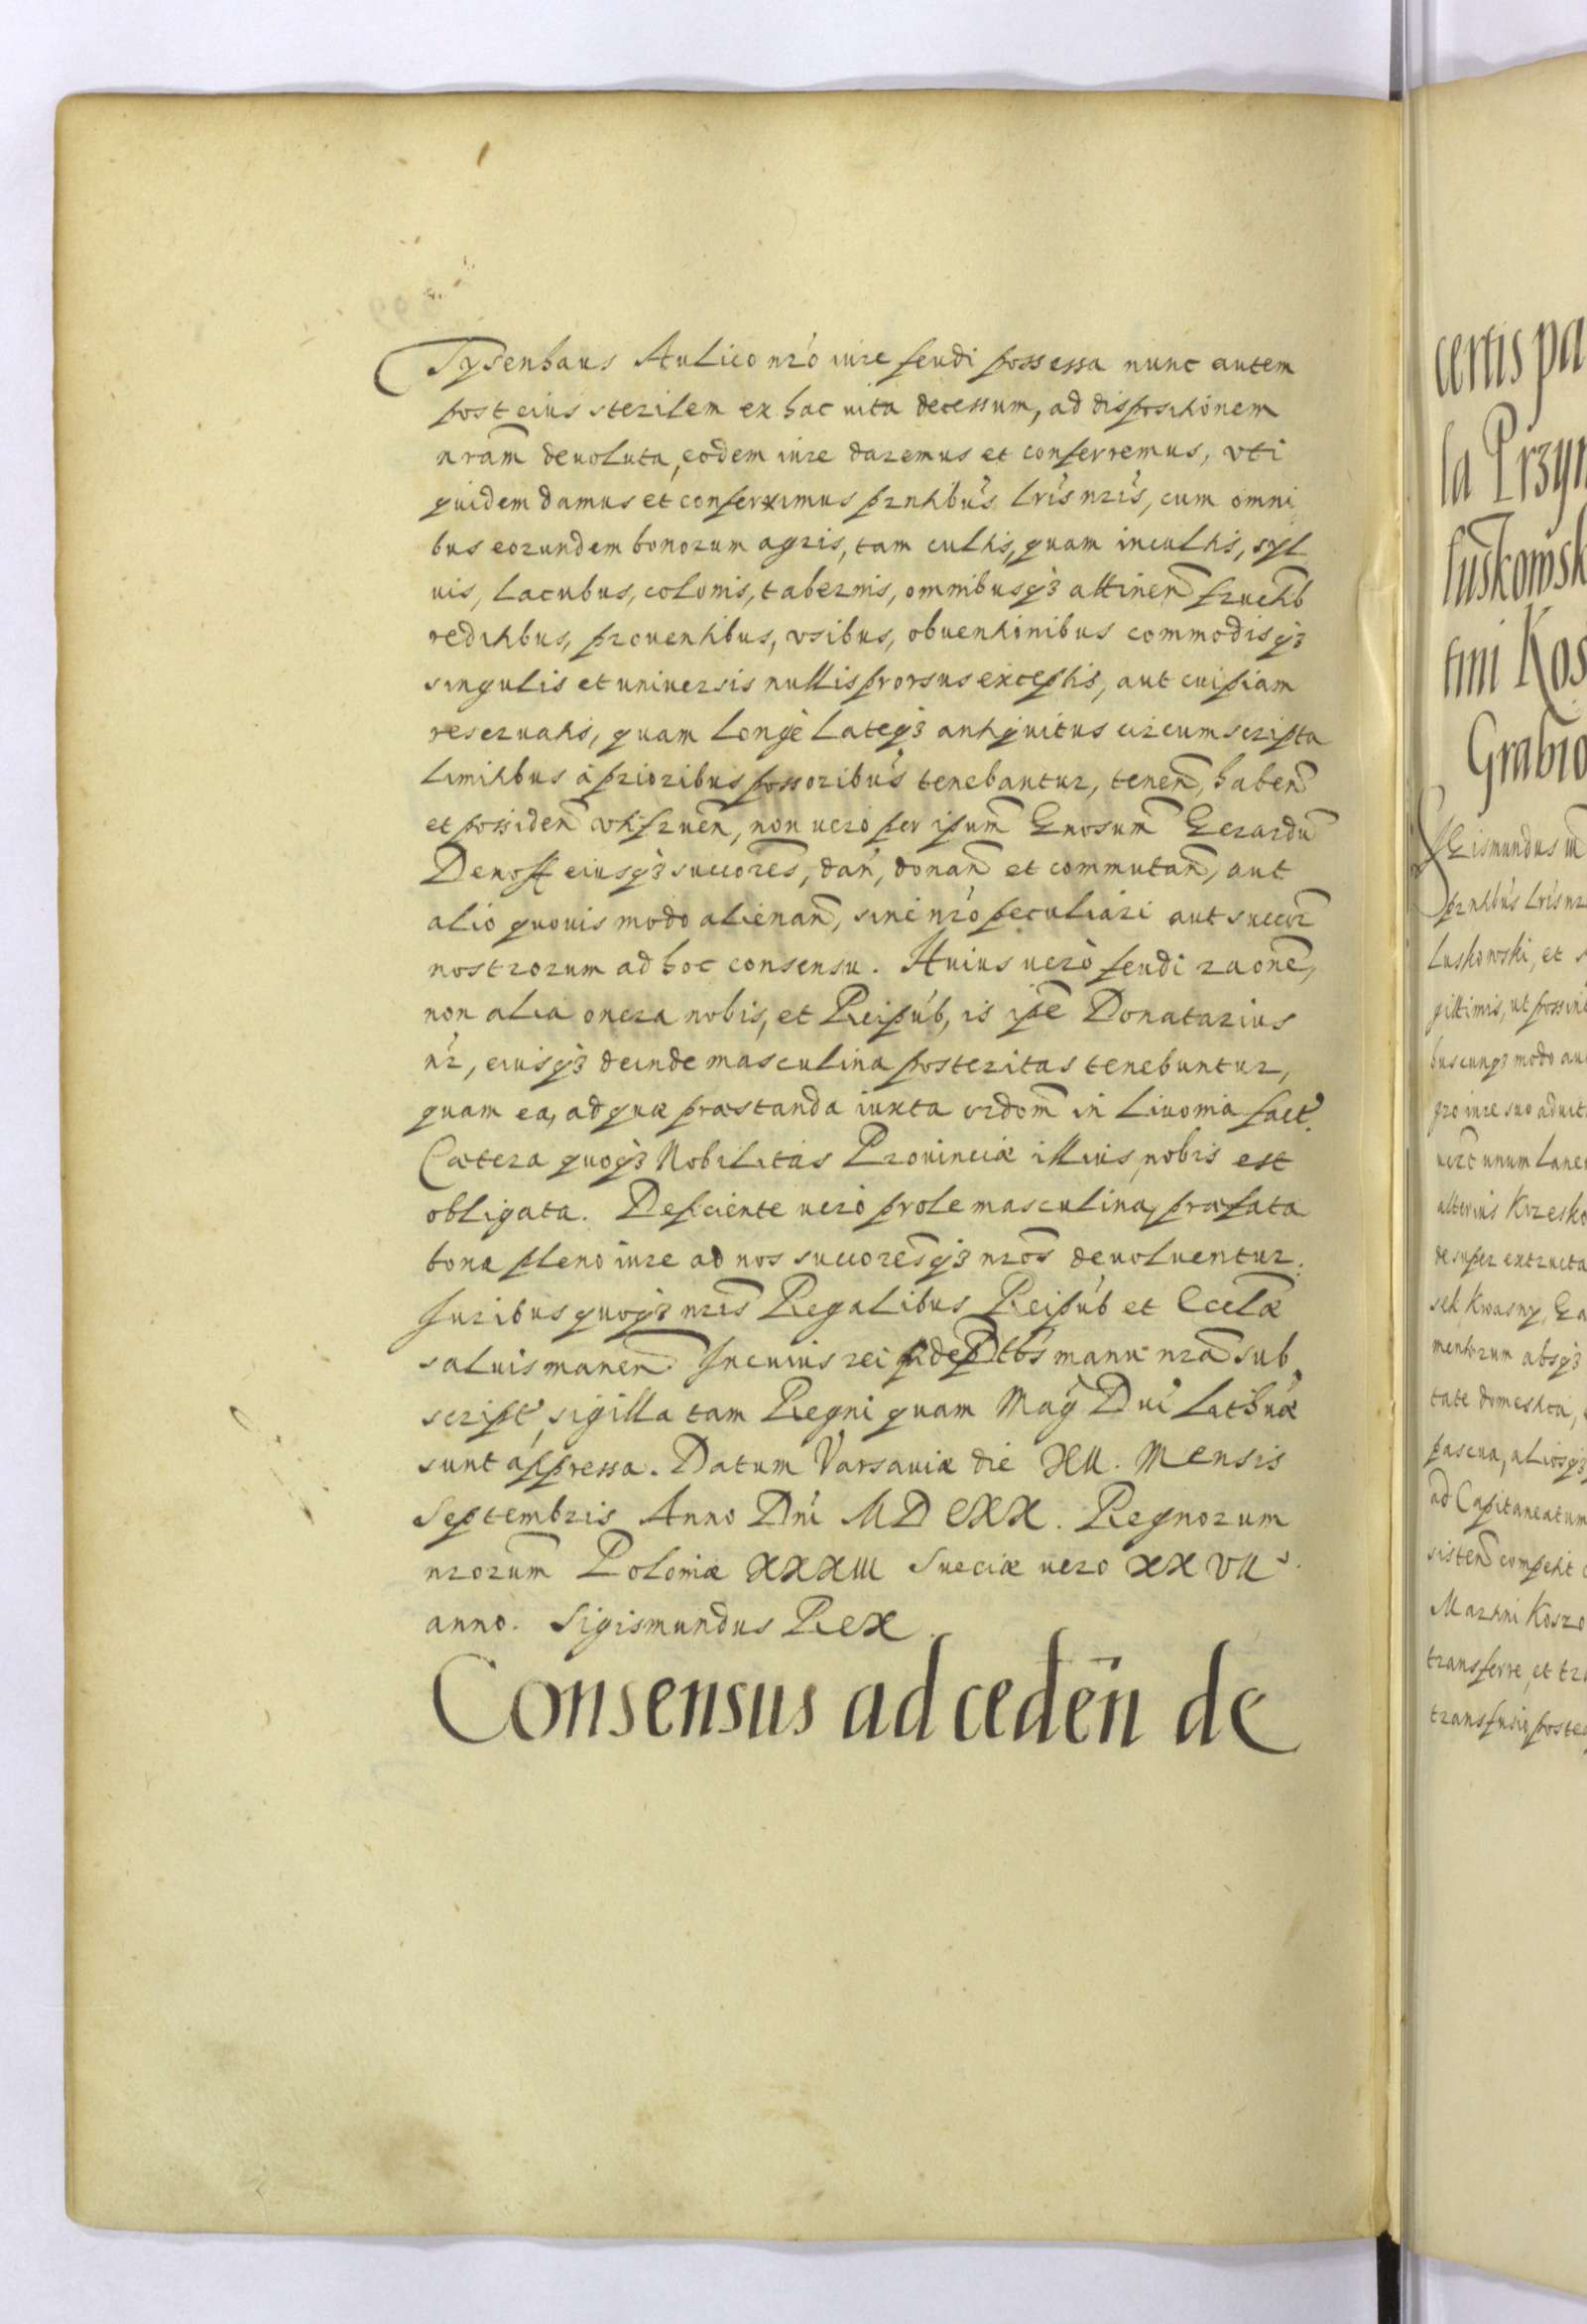 Tysenhaus Aulico nr̃o iure feudi possessa nunc autem
post eius sterilem ex hac uita decessum, ad dispositionem
nram̃ deuoluta, eodem iure daremus et conferremus, vti
quidem damus et conferimus prntibus lris nris, cum omni
bus eorundem bonorum agris, tam cultis, quam incultis, syl
uis, lacubus, colonis, tabernis, omnibusqз attinen̄ fructib
reditibus, prouentibus, vsibus, obuentionibus commodisqз
singulis et uniuersis nullis prorsus exceptis, aut cuipiam
reseruatis, quam longè lateqз antiquitus circumscripta
limitibus à prioribus possoribus tenebantur, tenen̄, haben̄
et possiden̄ vtifruen̄, non uerò per ipsum̄ Gnosum̄ Gerardū
Denoff eiusqз succores̄, dan̄, donan̄ et commutan̄, aut
alio quouis modo alienan̄, sine nr̃o peculiari aut succor̄
nostrorum ad hoc consensu. Huius uerò feudi raone̅,
non alia onera nobis, et Reipub, is ip̄e Donatarius
nr, eiusqз deinde masculina posteritas tenebuntur,
quam ea, ad quæ præstanda iuxta ordom̄ in Liuonia fact
Cætera quoqз Nobilitas Prouinciæ illius, nobis est
obligata. Deficiente uerò prole masculina, præfata
bona pleno iure ad nos succores̄qз nros̄ deuoluentur.
Iuribus quoqз nris̄ Regalibus Reipub et Eccl̄æ
saluis manen̄. In cuius rei fidē Pttbs manu nrā sub
script, sigilla tam Regni quam Mag Dui Lithuæ
sunt appressa. Datum Varsauiæ die XII. Mensis
Septembris Anno Dni MDCXX. Regnorum
nrorum̄ Poloniæ XXXIII Sueciæ uero XXVII
anno. Sigismundus Rex.
Consensus ad ceden̄ de
certis pa
la Przyn
luskowsk
tini Kos
Grabio
SGismundus III
prntibus lris nr
Luskowski, et s
gittimis, ut possin
buscunqз modo au
pro iure suo aduit
unum lane
alterius Krzesko
desuper extructa
sek Kwasny, Ga
mentorum absqз
tate domestica,
pascua, aliosqз
ad Capitaneatum
sisten̄ competit
Martini Koszo
transferre, et tr
transfusio, poste